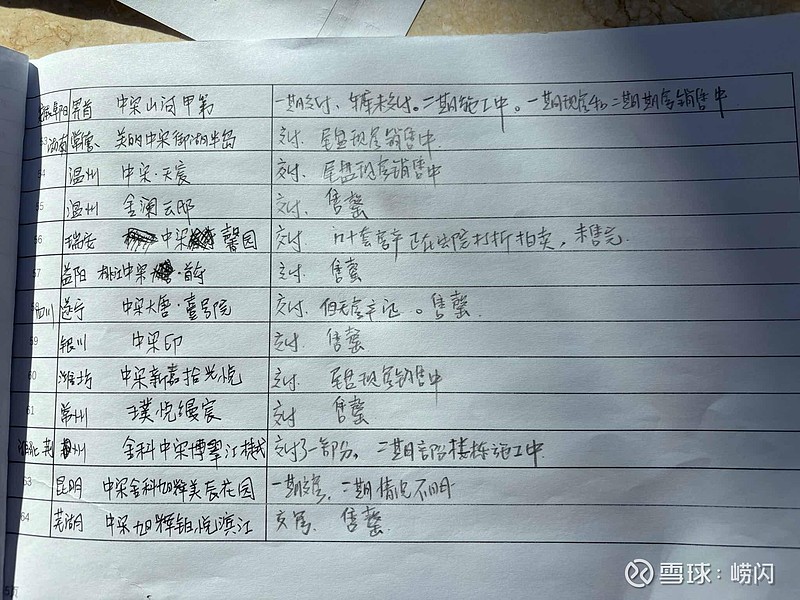 阜阳 界首 中梁山河甲第 一期交付、车库未交付。二期施工中。一期现房和二期期房销售中
美的中梁御湖半岛 交付. 尾盘现房销售中.
54 温州 中梁·天宸 交付. 尾盘现房销售中
55 温州 金澜云邸 交付. 售罄
56 瑞安 中梁 馨园 交付. 套房产正在法院打折拍卖, 未售完.
57 益阳 桃江中梁·首府 交付. 售罄
四川 遂宁 中梁大唐·壹号院 交付. 但无房产证。售罄.
59 银川 中梁印 交付. 售罄
60 潍坊 中梁新嘉拾光悦 交付. 尾盘现房销售中
61 常州 璞悦缦宸 交付 售罄
州 金科中梁博翠江樾 交付了一部份。二期部份楼栋施工中.
63 昆明 中梁金科旭辉美辰花园 一期交房, 二期情况不明
64 芜湖 中梁旭辉铂悦滨江 交房. 售罄.
5页
雪球:崂闪